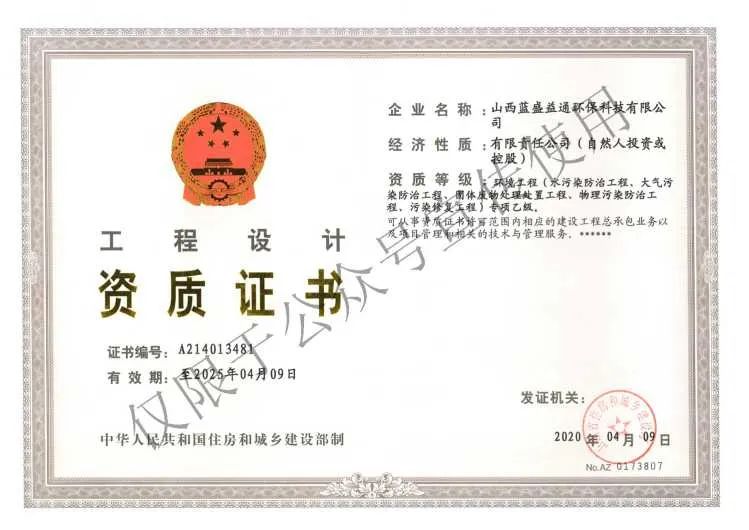 企业名称：山西蓝盛益通环保科技有限公
司
经济性质：有限责任公司（自然人投资或
控股）
资质等级：环境工程（水污染防治工程、大气污
染防治工程、固体废物处理处置工程、物理污染防治工
程、污染修复工程）专项乙级。
可从事资质证书许可范围内相应的建设工程总承包业务以
及项目管理和相关的技术与管理服务。******
工程设计
资质证书
证书编号：A214013481
有效期：至2025年04月09日
中华人民共和国住房和城乡建设部制
发证机关：
2020年04月09日
No.AZ 0173807
仅限于公众号宣传使用